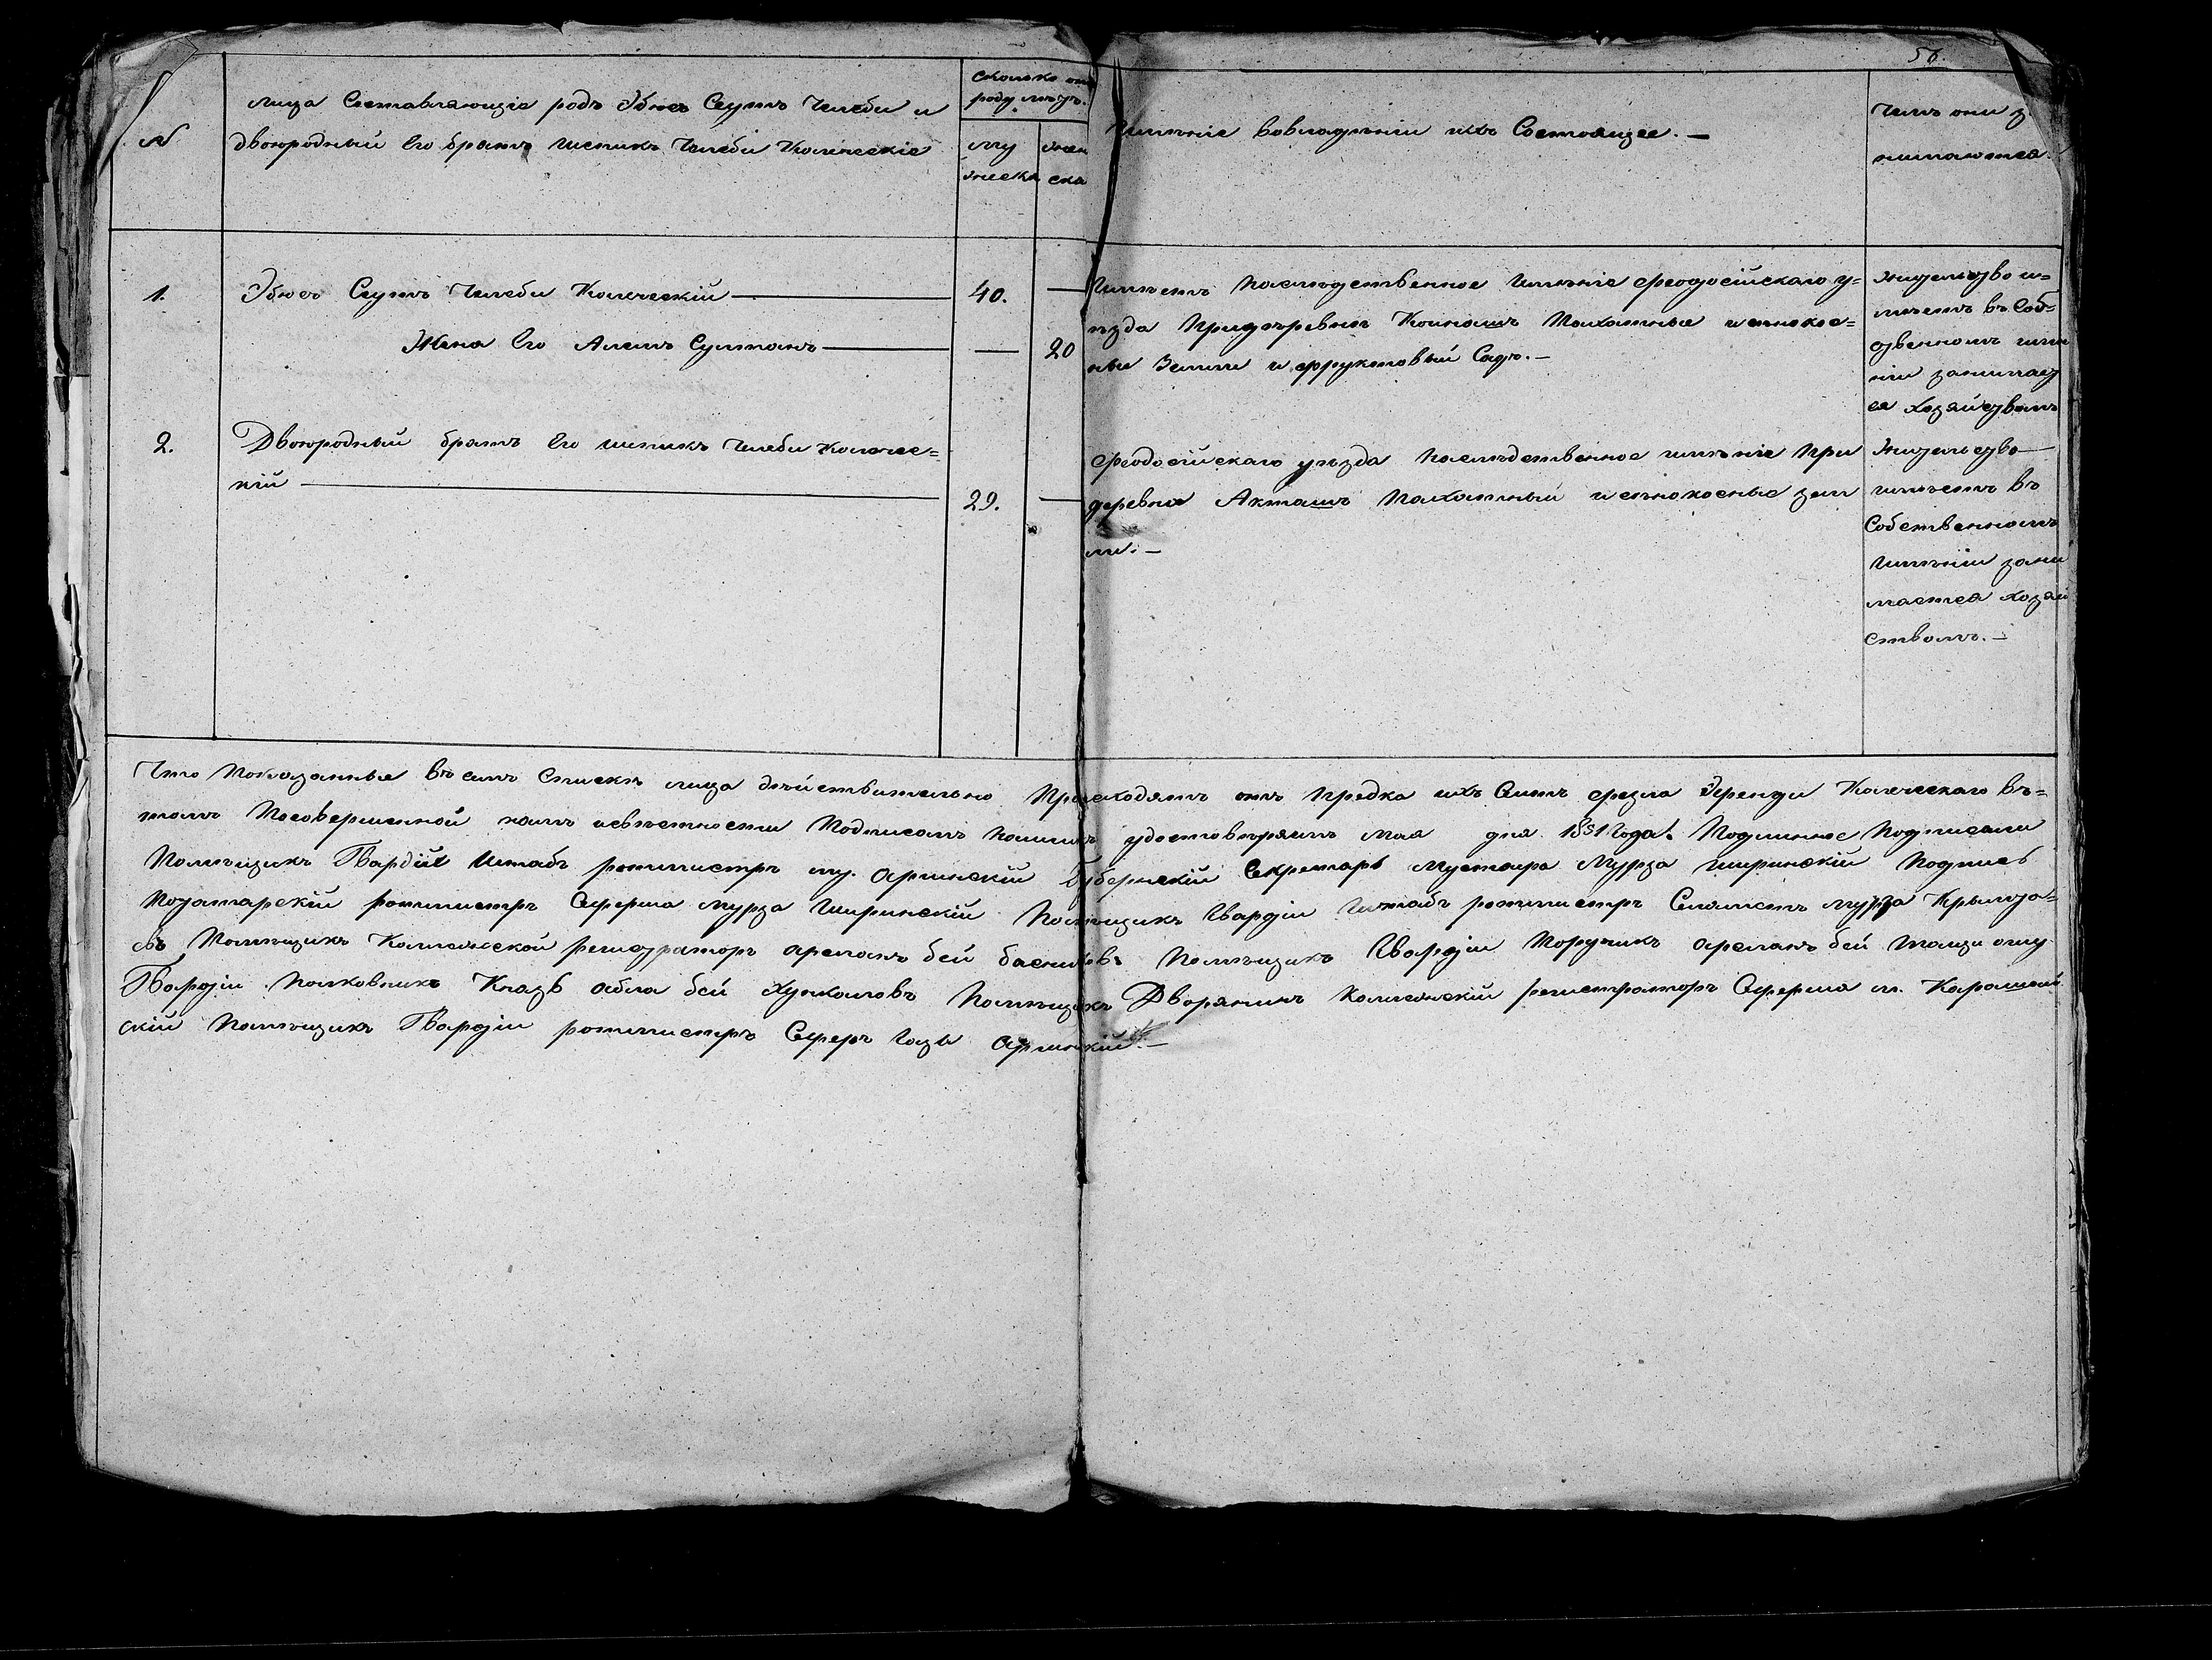 56.
N
лица Составляющіе родъ Эбюсъ Сеутъ Челеби и
двоюродный Его братъ Челеби Колечскіе
сколько отъ
роду летъ.
му
жеска
жен
ска
Имѣніе вовладѣніи ихъ Состоящее. —
Чемъ они за
нимаются.
1. Эбюсъ Сеутъ Челеби Колечскій — 40. —
Жена Его Алемъ Султанъ — — 20
Имѣетъ Наслѣдственное Имѣніе Феодосійскаго у=
ѣзда Придѣревнѣ Пахатные исѣнокос=
ные Земли и фруктовый Садъ. —
Жительство и=
мѣетъ въ Соб=
ственномъ имѣ
ніи занимает
ся хозяйствомъ
2. Двоюродный братъ Его Челеби Колечс=
кій — 29. —
Феодосійскаго уѣзда Наслѣдственное имѣніе При
деревне Акташъ Пахатный исѣнокосные зем
ли. —
Жительство
имѣетъ въ
Собственномъ
Имѣніи зани
мается хозяй
ствомъ. —
Что Показанные въсемъ Спискѣ лица дѣйствительно Происходятъ отъ Предка ихъ Сеитъ Эфенди Колечскаго въ=
томъ Посовершенной намъ извѣстности Подписомъ Нашимъ удостовѣряемъ мая дня 1851 Года. Подлинное Подписали
Помѣщикъ Гвардіи Штабъ ротмистръ му. Аргинскій Губернскій Секретарь Мустафа Мурза Ширинскій Подписъ
Потатарскій ротмистръ Сеферша мурза Ширинскій Помѣщикъ Гвардіи Штабъ ротмистръ Селаметъ мурза Крымта=
евъ Помѣщикъ Коллежской регистраторъ Арсланъ бей Помѣщикъ Гвардіи Поручикъ Арсланъ бей
Гвардіи Полковникъ Князь Абла бей Хункаловъ Помѣщикъ Дворянинъ Коллежскій регистраторъ Сеферша м. Карашай
скій Помѣщикъ Гвардіи ротмистръ Сеферъ Газы Аргинскій. —